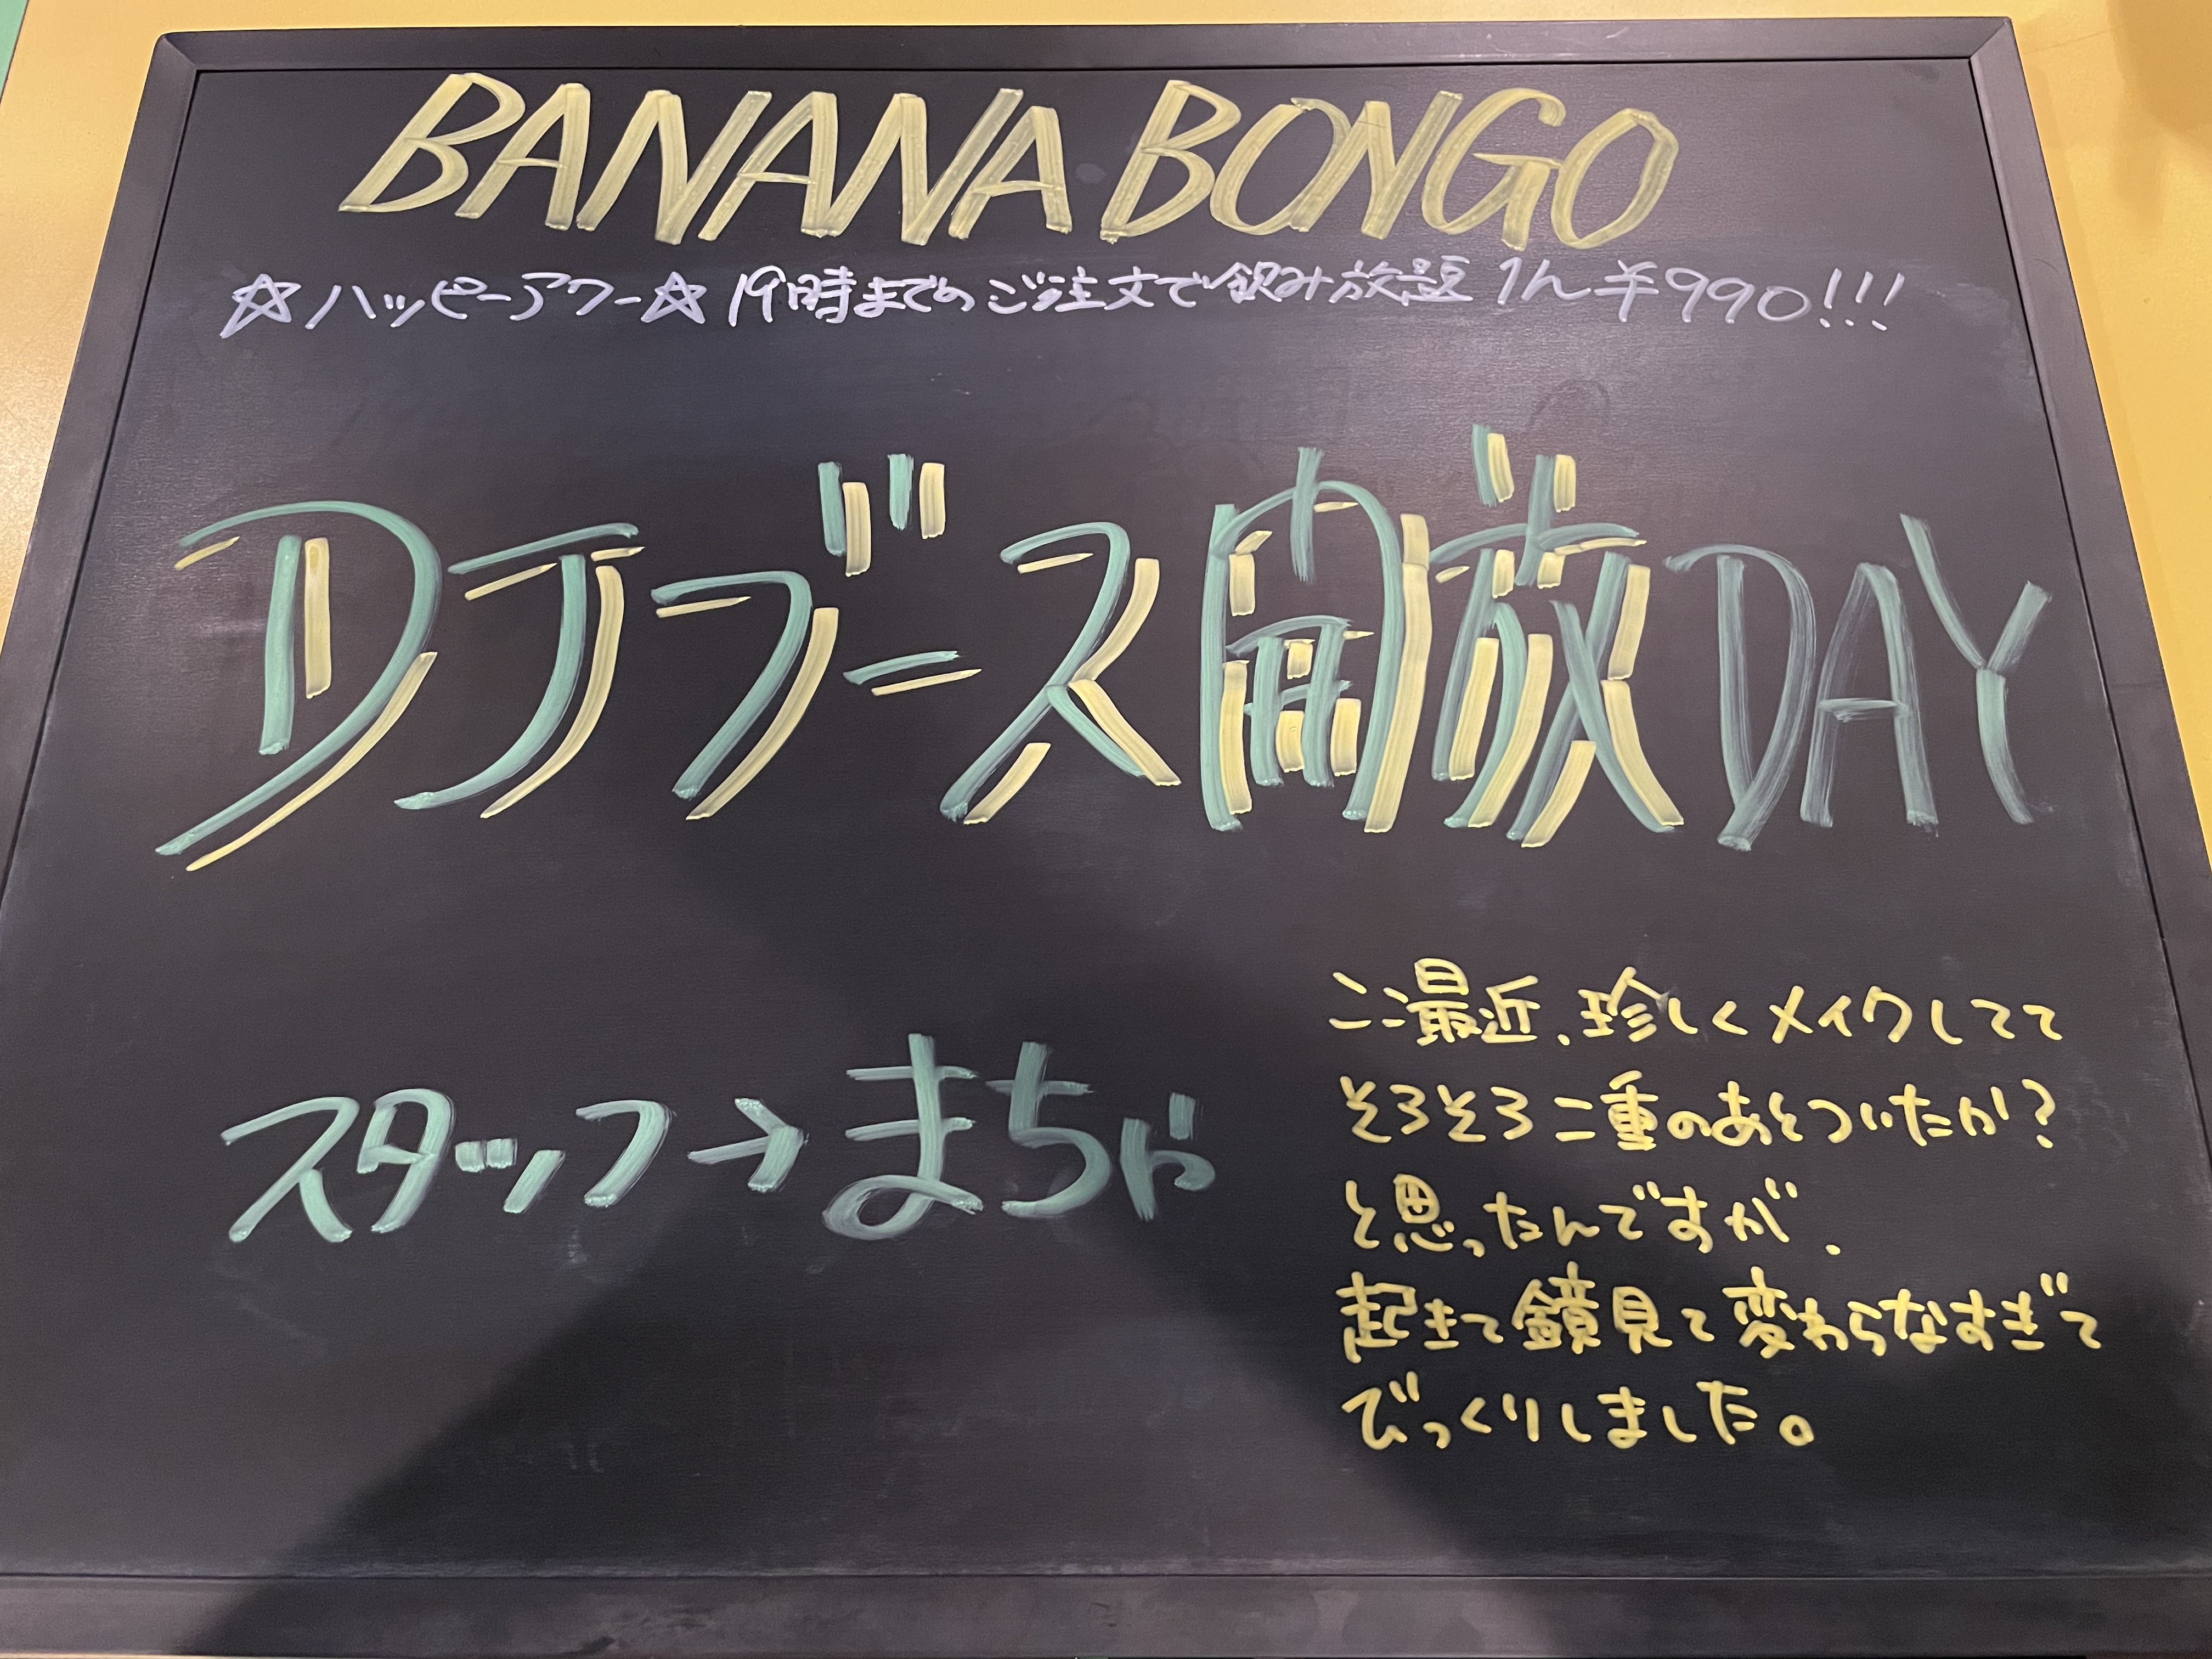 BANANA BONGO
☆ハッピーアワー☆ 19時までのご注文で飲み放題 1h ¥990!!!
DJブース開放DAY
スタッフ→まちゃ
ここ最近、珍しくメイクしてて
そろそろ二重のあとついたか?
と思ったんですが、
起きて鏡見て変わらなすぎて
びっくりしました。